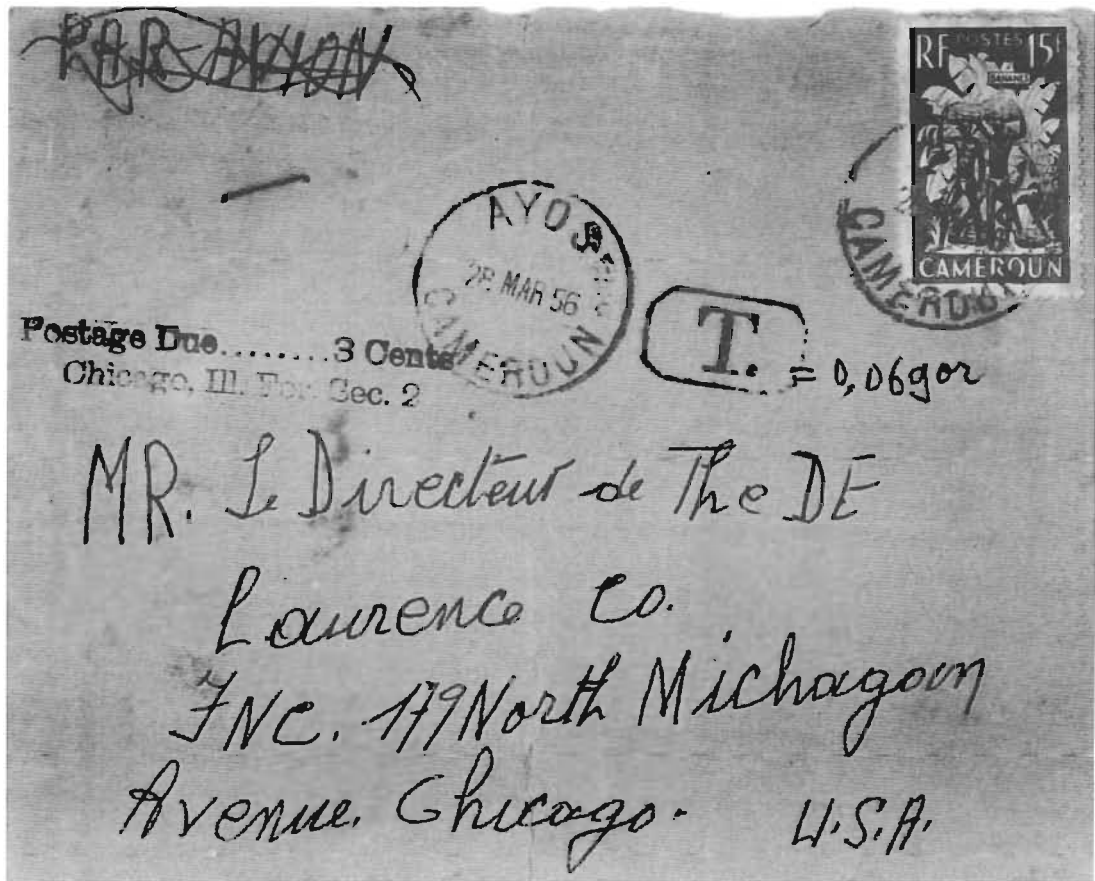 PAR AVION
RF POSTES 15F
BANANES
CAMEROUN
CAMEROUN
AYOS
28 MAR 56
CAMEROUN
T. = 0,06gor
Postage Due........3 Cents
Chicago, Ill. For. Sec. 2
MR. Le Directeur de The DE
Laurence Co.
INC. 179 North Michagoun
Avenue. Chicago. U.S.A.